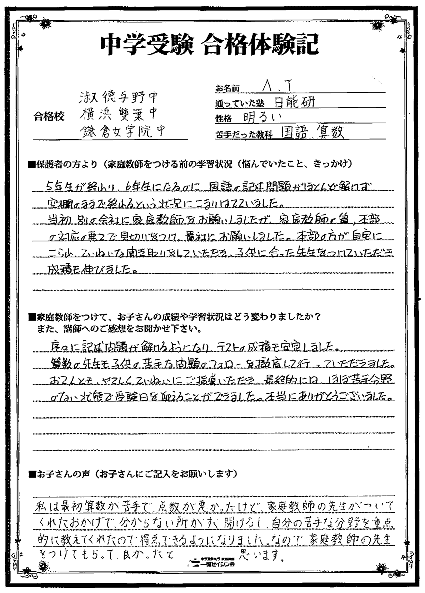 中学受験 合格体験記
合格校
淑徳与野中
横浜雙葉中
鎌倉女学院中
お名前 A.T
通っていた塾 日能研
性格 明るい
苦手だった教科 国語 算数
■保護者の方より（家庭教師をつける前の学習状況（悩んでいたこと、きっかけ）
5年生が終わり、6年生になるのに、国語の記述問題がほとんど解けず
空欄のままで終わるという状況にこまりはてていました。
当初、別の会社に家庭教師をお願いしましたが、家庭教師の質、本部
の対応の悪さで見切りをつけ、貴社にお願いしました。本部の方が自宅に
こられ、ていねいな聞き取りをしていただき、子供に合った先生をつけていただき
成績も伸びました。
■家庭教師をつけて、お子さんの成績や学習状況はどう変わりましたか？
また、講師へのご感想をお聞かせ下さい。
序々に記述問題が解けるようになり、テストの成績も安定しました。
算数の先生も子供の苦手な問題のフォローを徹底して行っていただきました。
お二人とも、やさしくていねいにご指導いただき、最終的には、ほぼ苦手分野
のない状態で受験日を迎えることができました。本当にありがとうございました。
■お子さんの声（お子さんにご記入をお願いします）
私は最初算数が苦手で、点数が悪かったけど、家庭教師の先生がついて
くれたおかげで、分からない所がすぐ聞けるし、自分の苦手な分野を重点
的に教えてくれたので得意できるようになりました。なので、家庭教師の先生
をつけてもらって、良かったと 思います。